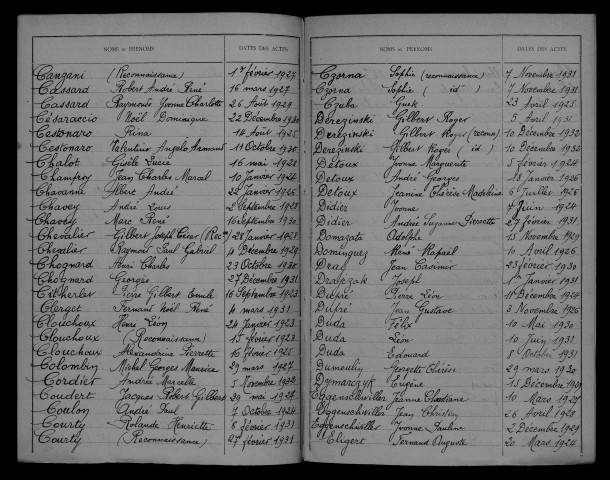 NOMS ET PRÉNOMS DATES DES ACTES
Canzani (Reconnaissance) 1er février 1927
Cassard Robert André René 16 mars 1927
Cassard Raymonde Yvonne Charlotte 26 Août 1929
Cédaraccio Noël Dominique 22 Décembre 1930
Cestonaro Irina 14 Août 1925
Cestonaro Valentine Angelo Armand 11 Octobre
Chalot Gisèle Lucie 16 mai 1928
Champroy Jean Charles Marcel 10 Janvier 1924
Chavanne Albert André 22 Janvier 1926
Chavey André Louis 2 Septembre 1928
Chavey Marc René 16 Septembre 1930
Chevalier Gilbert Joseph César (Rec.) 28 Janvier 1928
Chevalier Raymond Paul Gabriel 4 Décembre 1929
Chognard Henri Charles 23 Octobre
Chognard Georges 27 Décembre 1931
Pierre Gilbert Emile 16 Septembre 1923
Clerget Fernand Noël René 4 mars 1931
Clouchoux Henri Léon 24 Janvier 1923
Clouchoux (Reconnaissance) 15 février 1923
Clouchoux Alexandrine Pierrette 16 février 1925
Colombin Michel Georges Maurice 29 mars 1927
Cordier Andrée Marcelle 5 Novembre 1932
Coudert Jacques Robert Gilbert 29 mai 1924
Coulon André Paul 7 Octobre 1924
Courty Rolande Henriette 8 février 1931
Courty (Reconnaissance) 27 février 1931
NOMS ET PRÉNOMS DATES DES ACTES
Czorna Sophie (reconnaissance) 7 Novembre 1931
Czorna Sophie (id.) 7 Novembre 1931
Czuba 23 Avril 1925
Derezinski Gilbert Roger 5 Avril 1931
Derezinski Gilbert Roger (reconn.) 10 Décembre 1932
Derezinski Gilbert Roger (id.) 10 Décembre 1932
Detoux Yvonne Marguerite 5 février 1924
Detoux André Georges 28 Janvier 1926
Detoux Jeanine Thérèse Madeleine 6 Juillet 1926
Didier Yvonne 7 Juin 1924
Didier Andrée Suzanne Pierrette 27 février 1931
Donazata Adolphe 15 Novembre 1929
Dominguez René Rafaël 10 Avril 1926
Jean Casimir 23 février 1930
Drapczak Joseph 1er Janvier 1931
Dupré Pierre Léon 11 Décembre 1924
Dupré Jean Gustave 3 Novembre 1926
Duda Félix 10 Mai 1930
Duda Léon 10 Juin 1931
Duda Edouard 8 Octobre 1931
Dumoulin Georgette Thérèse 29 mars 1930
Dymarczyk Eugène 15 Décembre
Eggenschwiller Jeanne 10 Mars
Eggenschwiller Jean Christian 26 Avril 1928
Eggenschwiller Yvonne Pauline 2 Décembre 1929
Eligert Fernand Auguste 20 Mars 1924